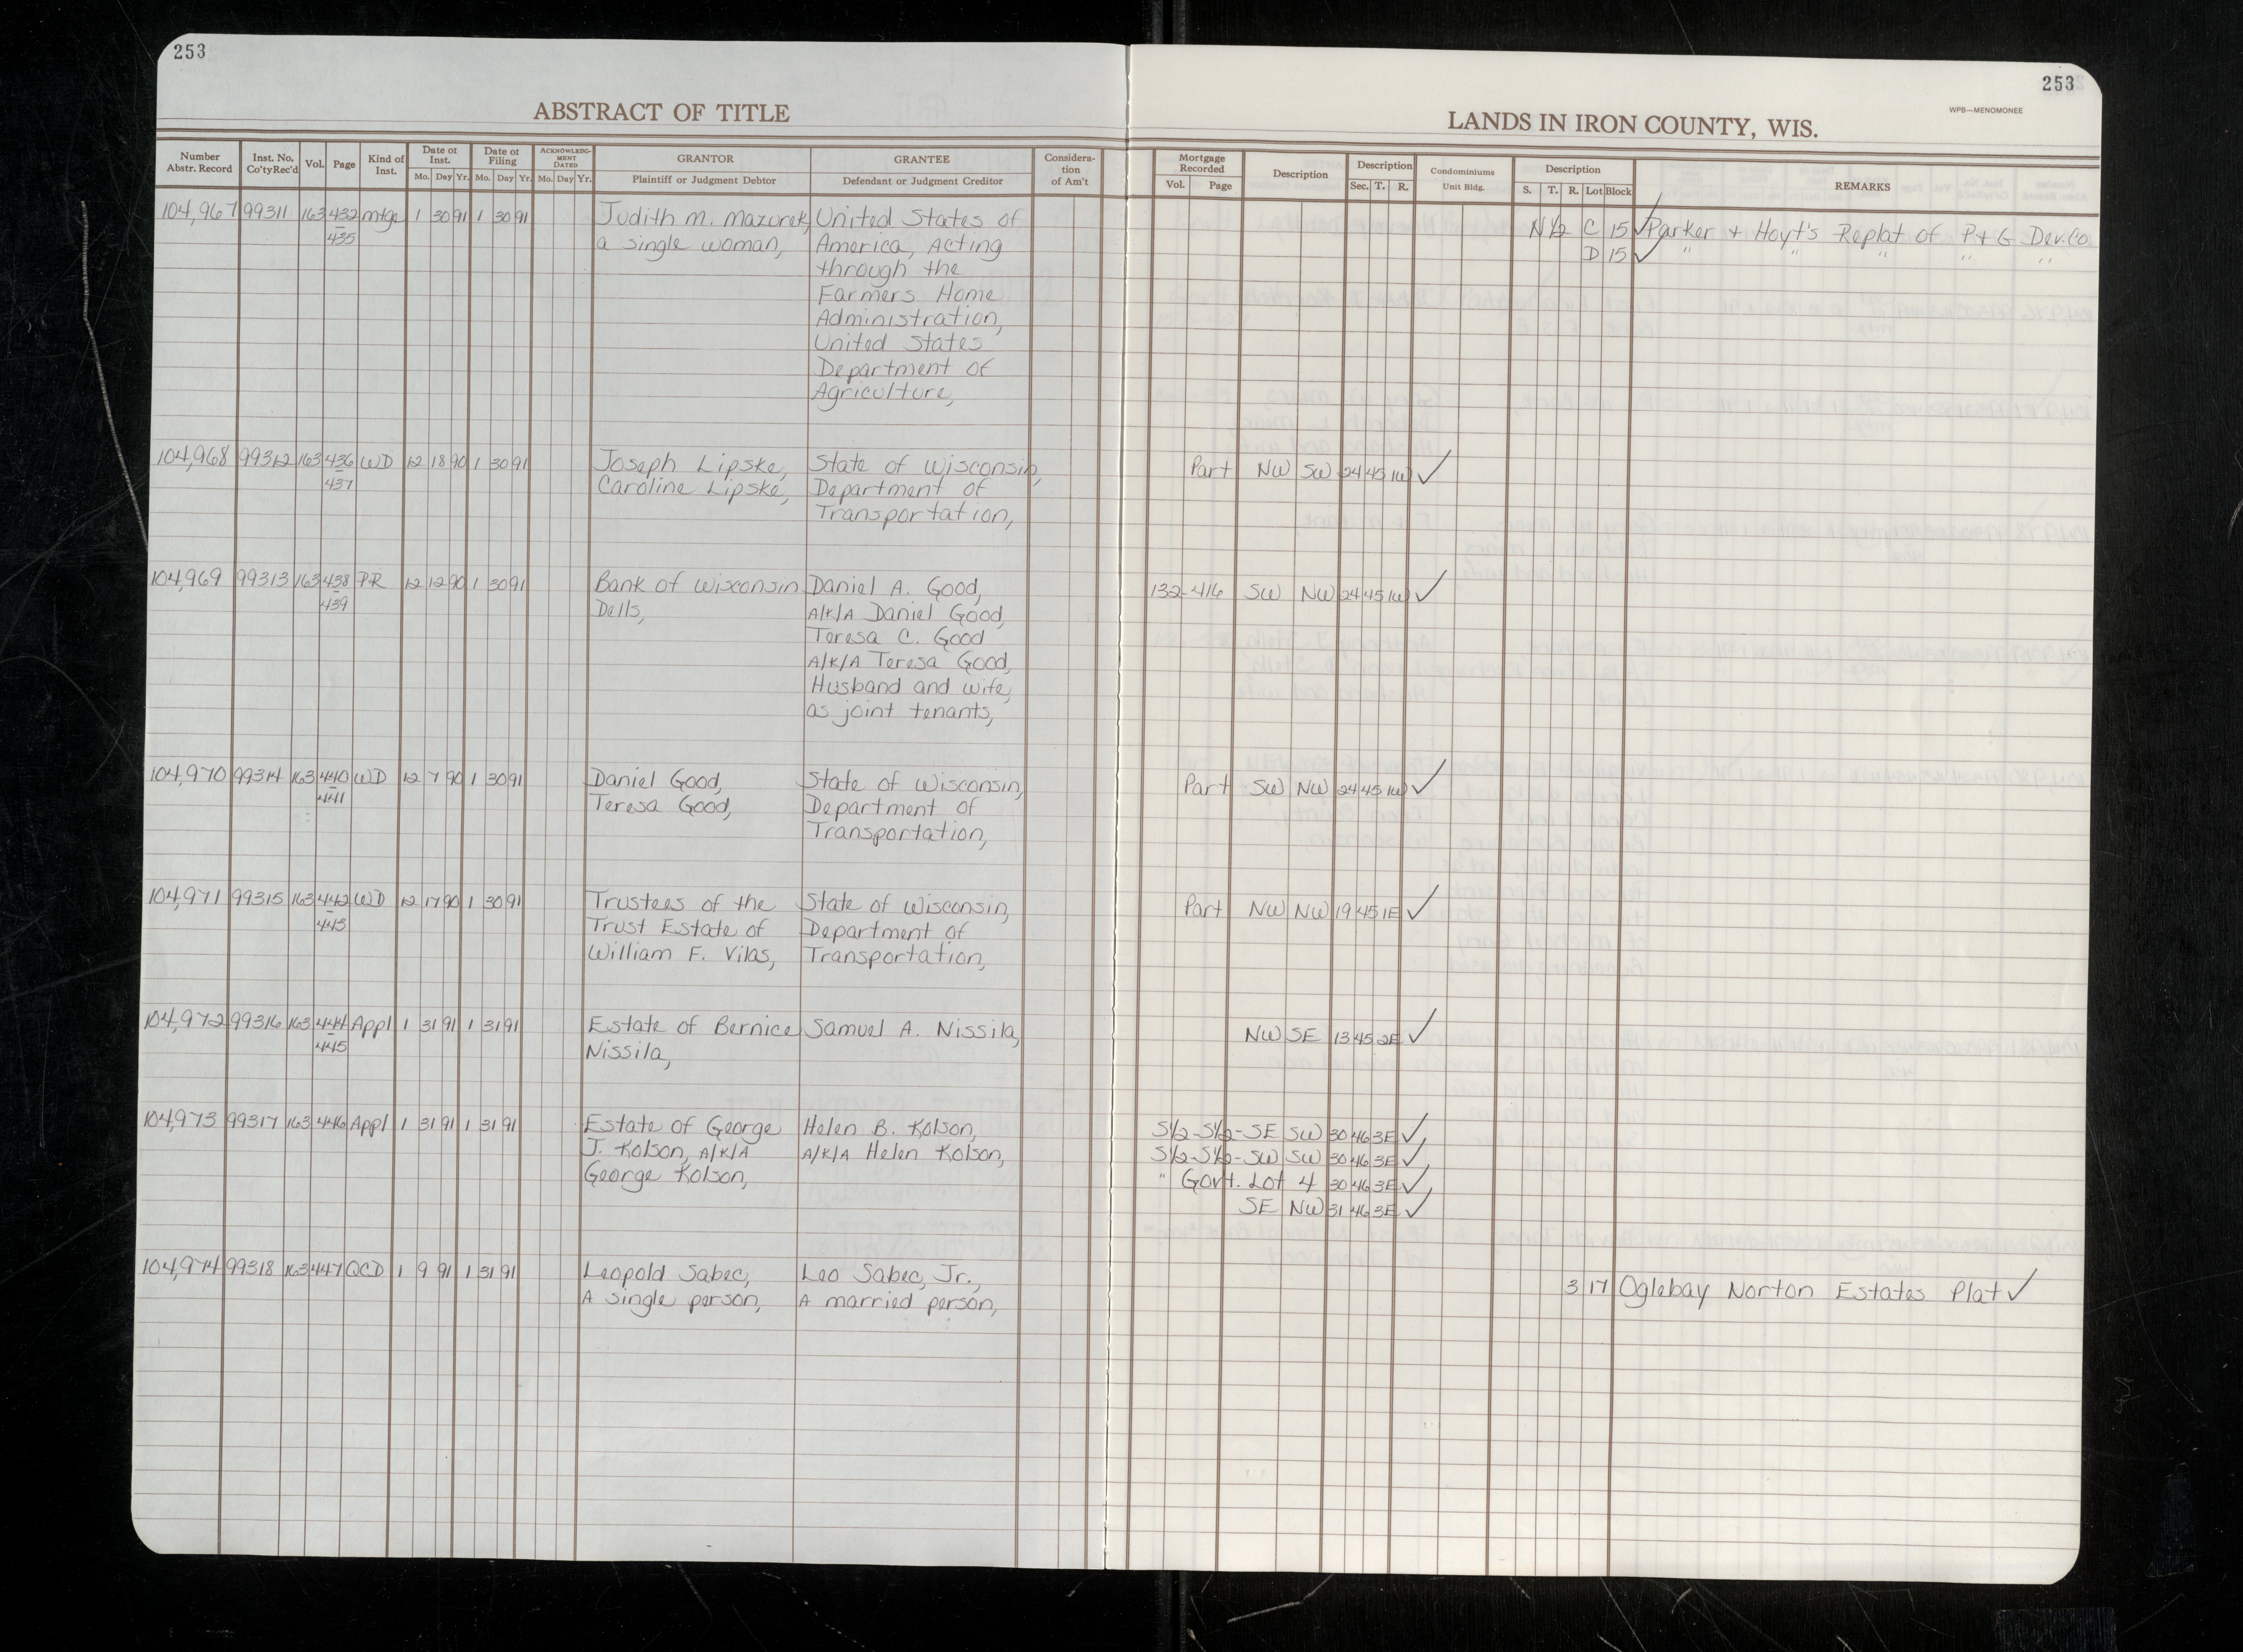 253
253
ABSTRACT OF TITLE
LANDS IN IRON COUNTY, WIS.
WPB—MENOMONEE
Number Abstr. Record | Inst. No. Co'ty Rec'd | Vol. | Page | Kind of Inst. | Date of Inst. Mo. Day Yr. | Date of Filing Mo. Day Yr. | ACKNOWLEDGMENT DATED Mo. Day Yr. | GRANTOR Plaintiff or Judgment Debtor | GRANTEE Defendant or Judgment Creditor | Consideration of Am't | Mortgage Recorded Vol. Page | Description | Description Sec. T. R. | Condominiums Unit Bldg. | Description S. T. R. Lot Block | REMARKS
104,967 99311 163 432 mtge 1 30 91 1 30 91 Judith M. Mazurek, United States of N½ C 15 ✓ Parker + Hoyt's Replat of P+G Dev. Co.
435 a single woman, America, Acting D 15 ✓ " " " " "
through the
Farmers Home
Administration,
United States
Department of
Agriculture,
104,968 99312 163 436 WD 12 18 90 1 30 91 Joseph Lipske, State of Wisconsin, Part NW SW 24 45 1W ✓
437 Caroline Lipske, Department of
Transportation,
104,969 99313 163 438 PR 12 12 90 1 30 91 Bank of Wisconsin Daniel A. Good, 132-416 SW NW 24 45 1W ✓
439 Dells, A/K/A Daniel Good,
Teresa C. Good
A/K/A Teresa Good,
Husband and wife,
as joint tenants,
104,970 99314 163 440 WD 12 7 90 1 30 91 Daniel Good, State of Wisconsin, Part SW NW 24 45 1W ✓
441 Teresa Good, Department of
Transportation,
104,971 99315 163 442 WD 12 17 90 1 30 91 Trustees of the State of Wisconsin, Part NW NW 19 45 1E ✓
443 Trust Estate of Department of
William F. Vilas, Transportation,
104,972 99316 163 444 Appl 1 31 91 1 31 91 Estate of Bernice Samuel A. Nissila, NW SE 13 45 2E ✓
445 Nissila,
104,973 99317 163 446 Appl 1 31 91 1 31 91 Estate of George Helen B. Kolson, S½-S½-SE SW 30 46 3E ✓
J. Kolson, A/K/A A/K/A Helen Kolson, S½-S½-SW SW 30 46 3E ✓
George Kolson, " Govt. Lot 4 30 46 3E ✓
SE NW 31 46 3E ✓
104,974 99318 163 447 QCD 1 9 91 1 31 91 Leopold Sabec, Leo Sabec, Jr., 3 17 Oglebay Norton Estates Plat ✓
A single person, A married person,